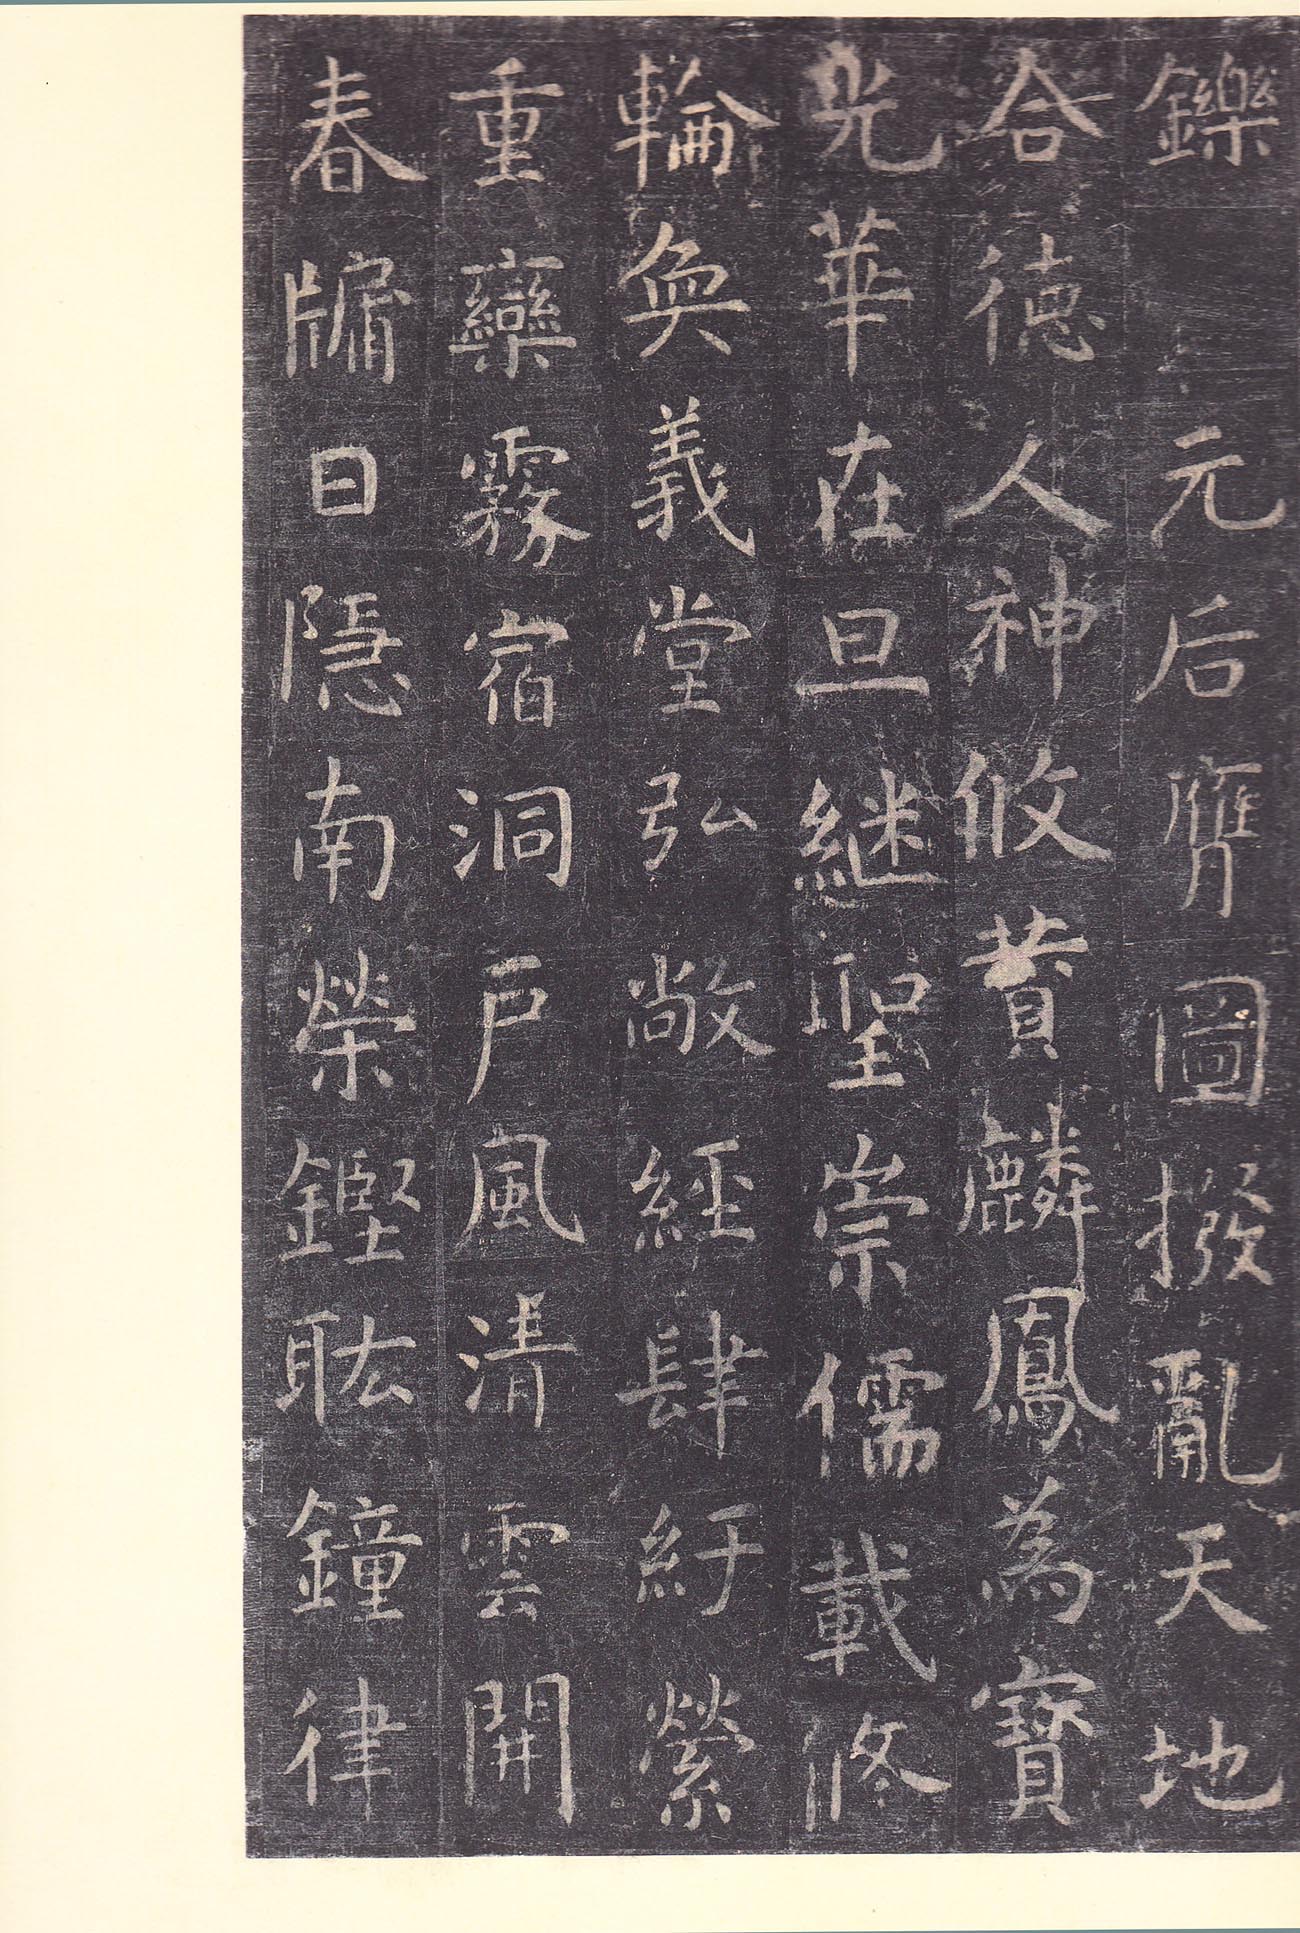 鑠 元后膺圖撥亂天地
合德人神攸賛麟鳳為寶
光華在旦継聖崇儒載脩
輪奐義堂弘敞經肆紆縈
重欒霧宿洞戶風清雲開
春牗日隱南榮鏗耾鐘律